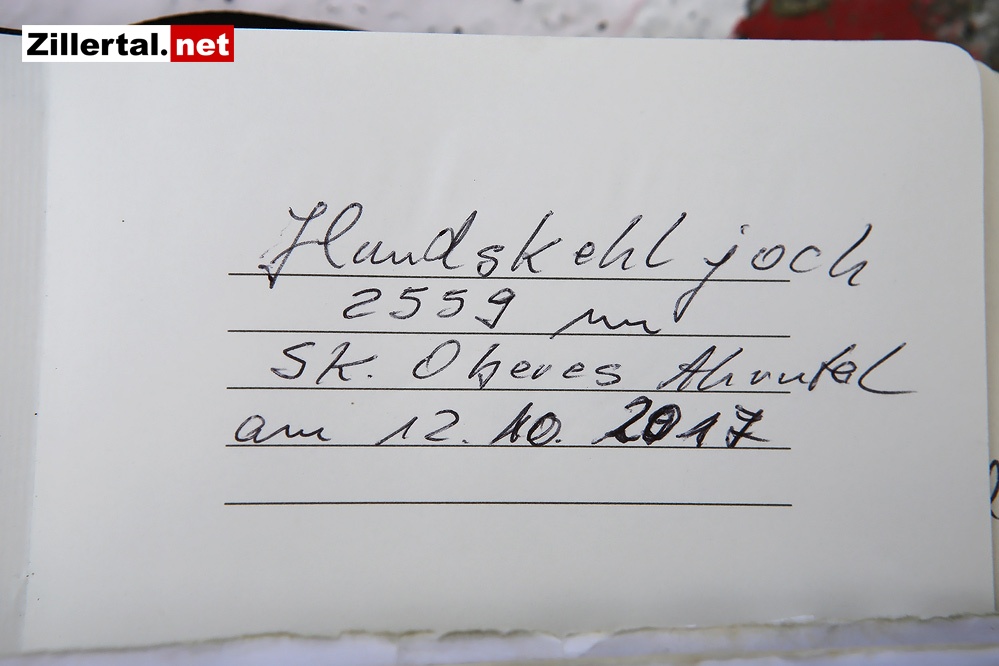 Zillertal.net
Hundskehljoch
2559 m
SK. Oberes Ahrntal
am 12. 10. 2017